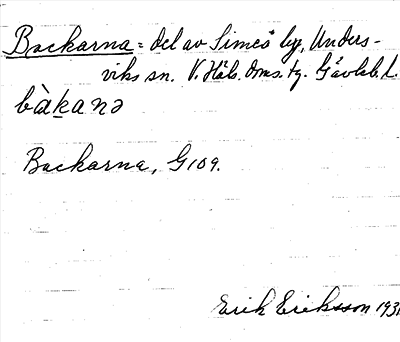 Backarna = del av Simeå by, Unders-
viks sn. V. Häls. doms. tg. Gävleb. l.
bàkanə
Backarna, G 109.
Erik Eriksson 193